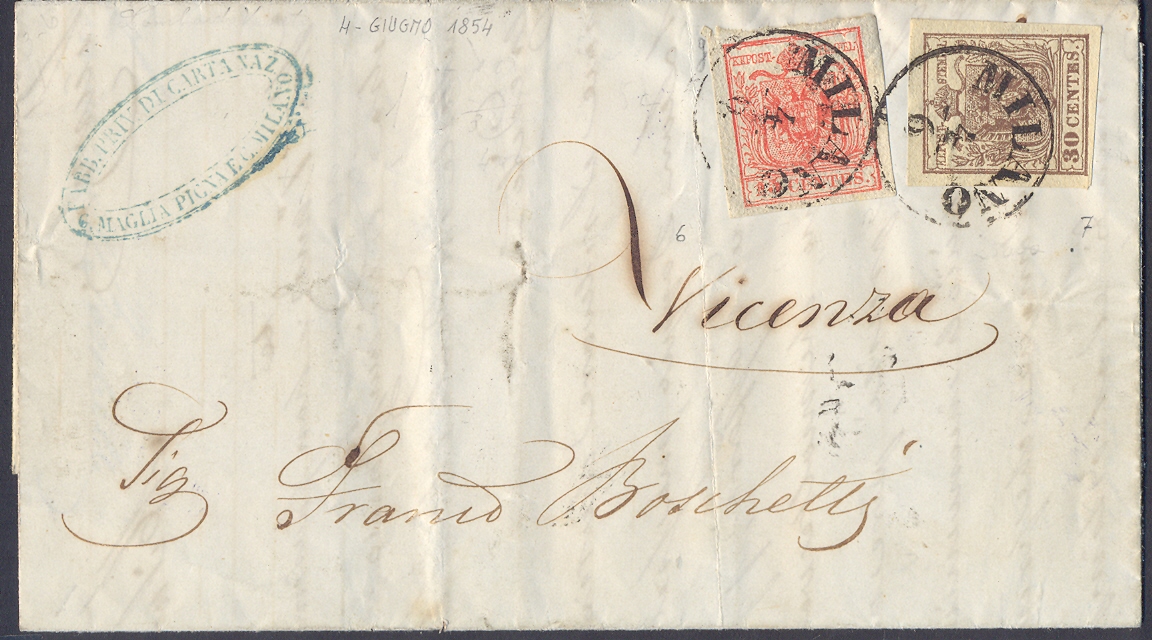 4 - GIUGNO 1854
FABB. PRIV. DI CARTA NAZ.
MAGLIA PIGNA E C. MILANO
KKPOST-
STEMPEL
15 CENTES.
MILANO
4
6
30 CENTES.
MILANO
4
6
6
7
Vicenza
Sig
Franco Boschetti